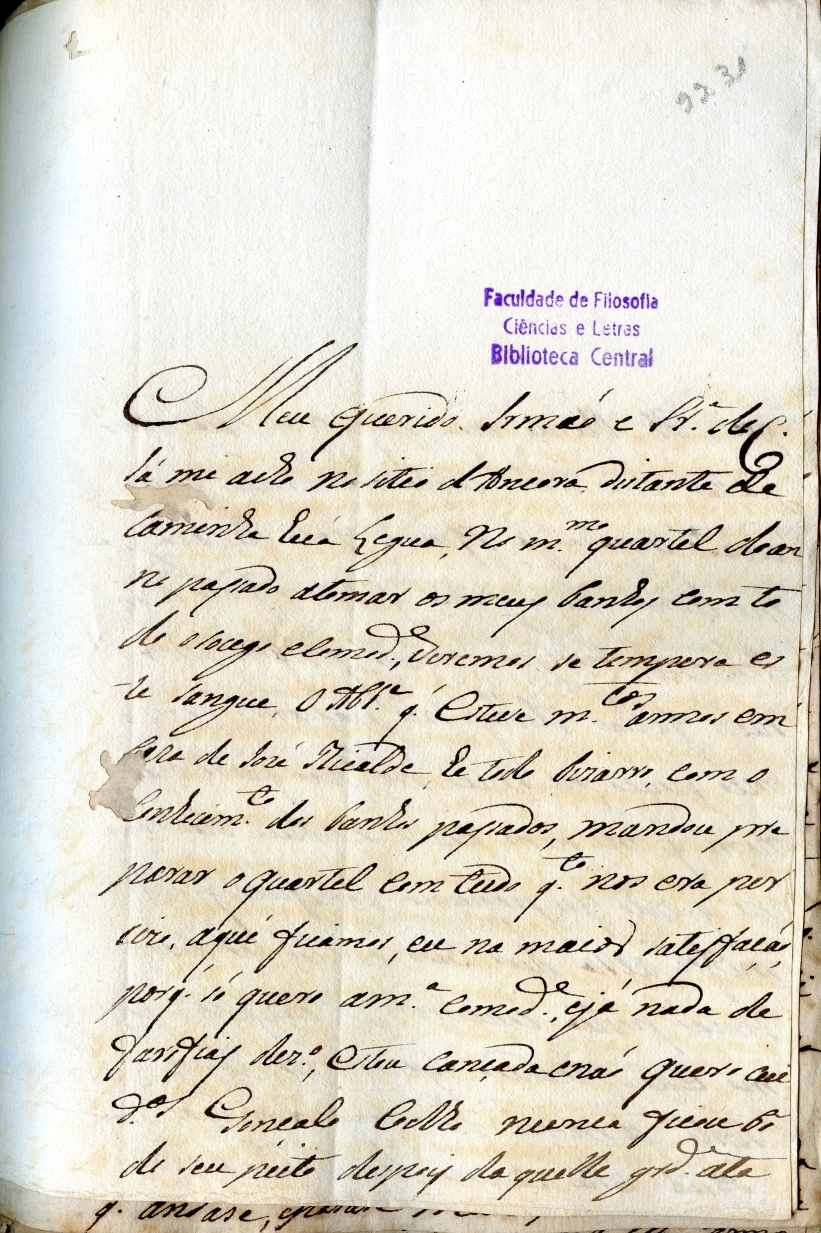 99 3
Faculdade de Filosofia
Ciências e Letras
Biblioteca Central
Meu querido Irmaõ e Sr.ª de C.
Já me acho no sitio d'Ancora, distante de
Caminha huã Legua, No m.mo quartel do an
no passado atomar os meus banhos com to
do osocego ecomod.e, veremos se tempera es
te sangue, O Ab.e q. Esteve m.tos annos em
Caza de José Ricalde, he todo bizarro, com o
Conhecim.to dos banhos passados, mandou pre
parar o quartel com tudo q.to nos era per
cizo, aqui ficamos, eu na maior satisfacaõ,
porq. só quero am.ª comod.e, ejá nada de
dez.º, Estou cançada enaõ quero cui
d.os Gonçalo Coelho nunca ficou bõ
do seu peito despois daquelle grd.e ata
q.